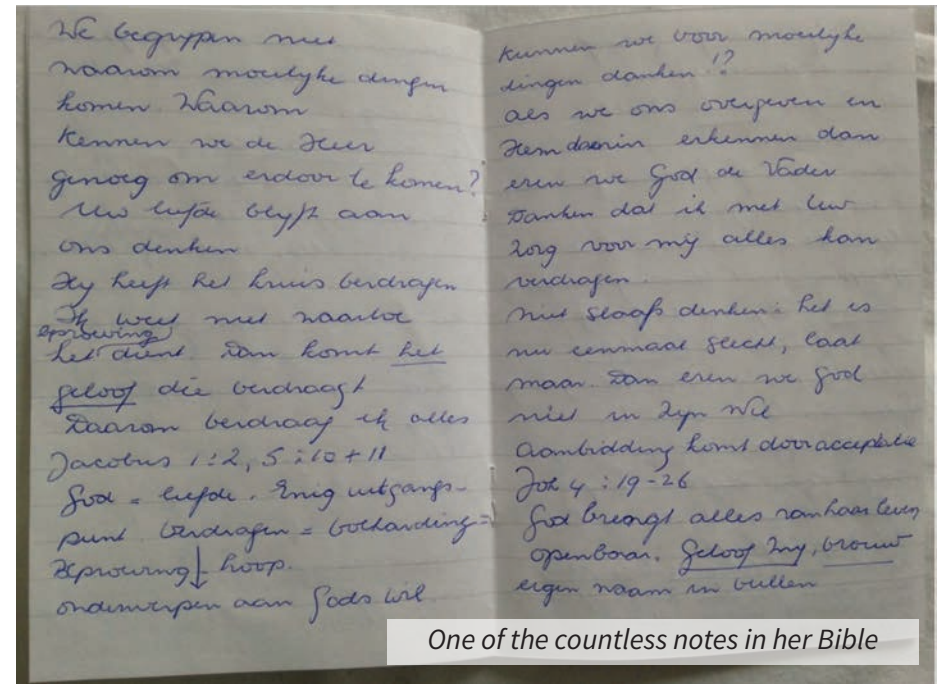 We begrijpen niet
waarom moeilijke dingen
komen. Waarom
Kennen we de Heer
genoeg om erdoor te komen?
Uw liefde blijft aan
ons denken
Hij heeft het kruis verdragen
Ik weet niet waartoe
beproeving
het dient. Dan komt het
geloof die verdraagt
Daarom verdraag ik alles
Jacobus 1:2, 5:10+11
God = liefde. Enig uitgangs-
punt. Verdragen = volharding =
Beproeving hoop.
onderwerpen aan Gods wil
Kunnen we voor moeilijke
dingen danken!?
als we ons overgeven en
Hem daarin erkennen dan
eren we God de Vader
Danken dat ik met Uw
zorg voor mij alles kan
verdragen.
niet slaafs denken: het is
nu eenmaal slecht, laat
maar. Dan eren we God
niet in Zijn Wil
Aanbidding komt door acceptatie
Joh 4:19-26
God brengt alles van haar leven
openbaar. Geloof Mij, vrouw
eigen naam in vullen
One of the countless notes in her Bible